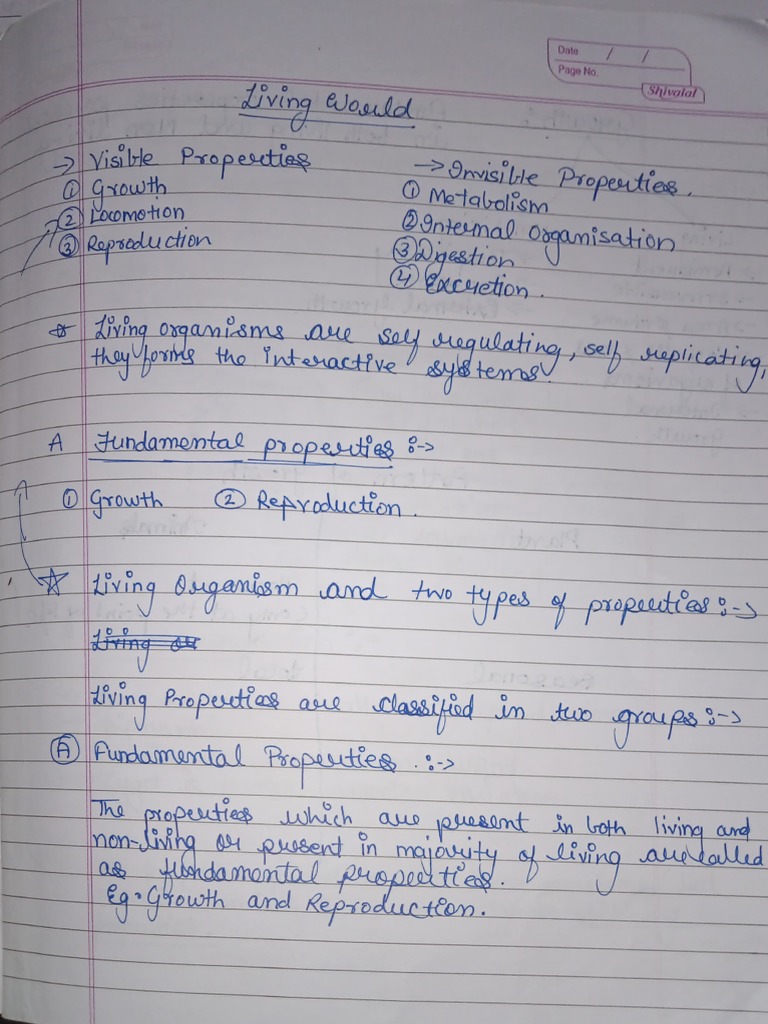 Date / /
Page No.
Shivalal
Living World
→ Visible Properties
① Growth
② Locomotion
③ Reproduction
→ Invisible Properties.
① Metabolism
② Internal Organisation
③ Digestion
④ Excretion.
* Living organisms are self regulating, self replicating,
they forms the interactive systems.
A Fundamental properties :->
① Growth ② Reproduction.
☆ Living Organism and two types of properties :->
Living Properties are classified in two groups :->
Ⓐ Fundamental Properties . :->
The properties which are present in both living and
non-living or present in majority of living are called
as fundamental properties.
Eg. Growth and Reproduction.